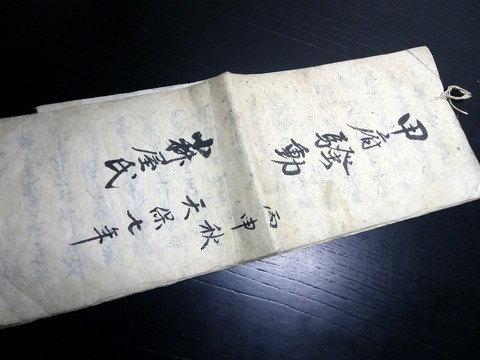 甲府騒動
天保七年
丙申
秋
屋氏